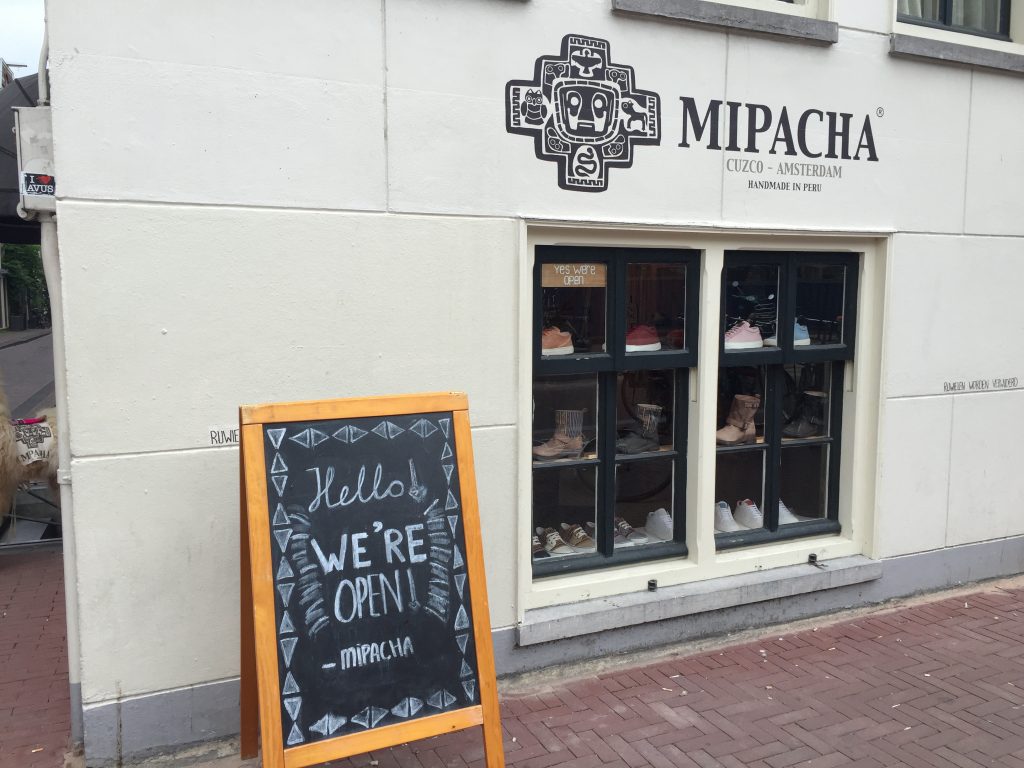 MIPACHA®
CUZCO - AMSTERDAM
HANDMADE IN PERU
I ❤
AVUS
YES WE'RE
OPEN
RIJWIELEN WORDEN VERWIJDERD
RIJWIE
Hello!
WE'RE
OPEN!
- MIPACHA
MIPACHA